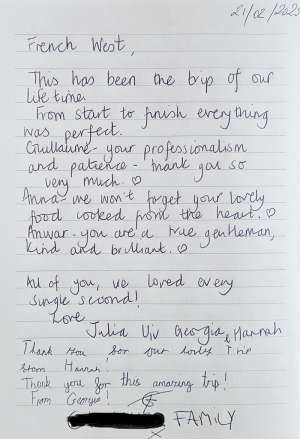 21/02/2023
French West,
This has been the trip of our
life time.
From start to finish everything
was perfect.
Guillaume - your professionalism
and patience - thank you so
very much. ♡
Anna - we won't forget your lovely
food cooked from the heart. ♡
Anwar - you are a true gentleman,
kind and brilliant. ♡
All of you, we loved every
single second!
Love
Julia Viv Georgia & Hannah
Thank you for our lovely Trip
from Hannah!
Thank you for this amazing trip!
From Georgia!
FAMILY